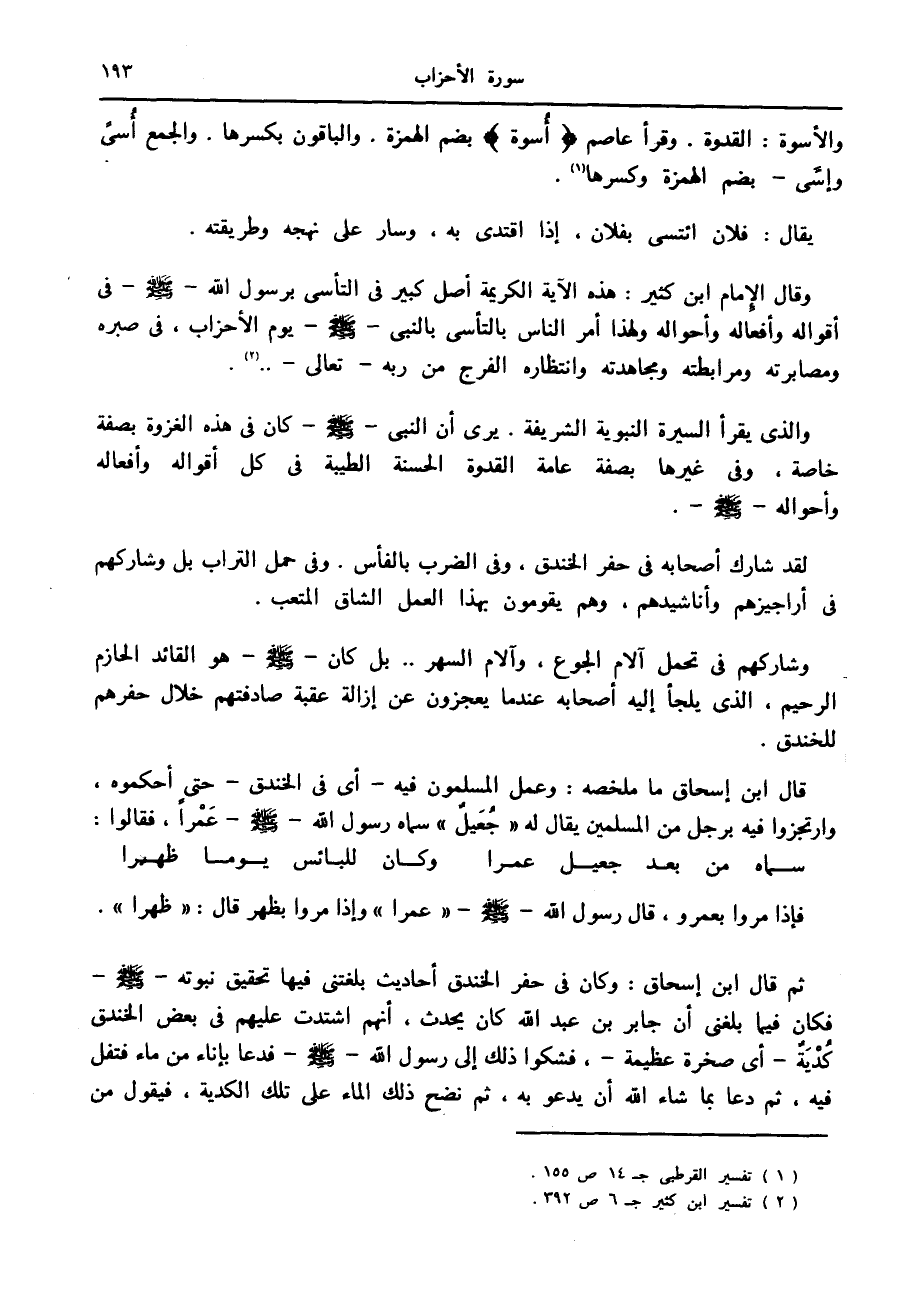 سورة الأحزاب ١٩٣
والأسوة : القدوة . وقرأ عاصم ﴿ أُسوة ﴾ بضم الهمزة . والباقون بكسرها . والجمع أُسىً
وإسًى – بضم الهمزة وكسرها(١) .
يقال : فلان ائتسى بفلان ، إذا اقتدى به ، وسار على نهجه وطريقته .
وقال الإمام ابن كثير : هذه الآية الكريمة أصل كبير فى التأسى برسول الله – ﷺ – فى
أقواله وأفعاله وأحواله ولهذا أمر الناس بالتأسى بالنبى – ﷺ – يوم الأحزاب ، فى صبره
ومصابرته ومرابطته ومجاهدته وانتظاره الفرج من ربه – تعالى – ..(٢) .
والذى يقرأ السيرة النبوية الشريفة . يرى أن النبى – ﷺ – كان فى هذه الغزوة بصفة
خاصة ، وفى غيرها بصفة عامة القدوة الحسنة الطيبة فى كل أقواله وأفعاله
وأحواله – ﷺ – .
لقد شارك أصحابه فى حفر الخندق ، وفى الضرب بالفأس . وفى حمل التراب بل وشاركهم
فى أراجيزهم وأناشيدهم ، وهم يقومون بهذا العمل الشاق المتعب .
وشاركهم فى تحمل آلام الجوع ، وآلام السهر .. بل كان – ﷺ – هو القائد الحازم
الرحيم ، الذى يلجأ إليه أصحابه عندما يعجزون عن إزالة عقبة صادفتهم خلال حفرهم
للخندق .
قال ابن إسحاق ما ملخصه : وعمل المسلمون فيه – أى فى الخندق – حتى أحكموه ،
وارتجزوا فيه برجل من المسلمين يقال له « جُعَيلٌ » سماه رسول الله – ﷺ – عَمْراً ، فقالوا :
سماه من بعد جعيل عمرا وكان للبائس يوما ظهرا
فإذا مروا بعمرو ، قال رسول الله – ﷺ – « عمرا » وإذا مروا بظهر قال : « ظهرا » .
ثم قال ابن إسحاق : وكان فى حفر الخندق أحاديث بلغتنى فيها تحقيق نبوته – ﷺ –
فكان فيما بلغنى أن جابر بن عبد الله كان يحدث ، أنهم اشتدت عليهم فى بعض الخندق
كُدْيَةٌ – أى صخرة عظيمة – ، فشكوا ذلك إلى رسول الله – ﷺ – فدعا بإناء من ماء فتفل
فيه ، ثم دعا بما شاء الله أن يدعو به ، ثم نضح ذلك الماء على تلك الكدية ، فيقول من
( ١ ) تفسير القرطبى جـ ١٤ ص ١٥٥ .
( ٢ ) تفسير ابن كثير جـ ٦ ص ٣٩٢ .